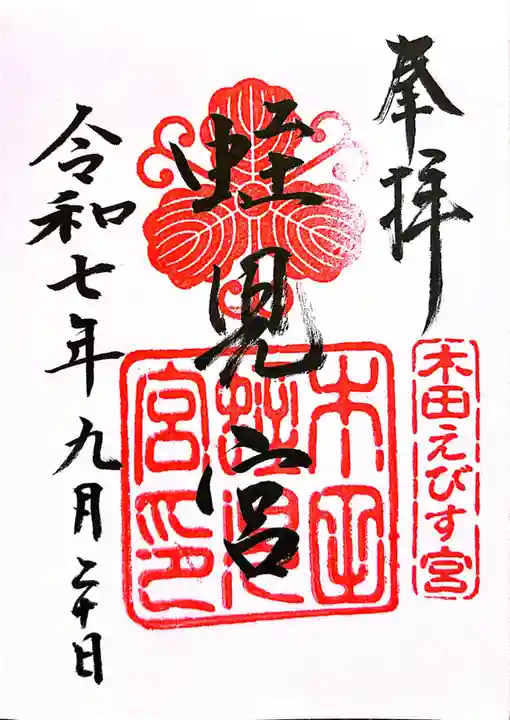 奉拝
木田えびす宮
蛭兒宮
木田
蛭兒
宮印
令和七年九月二十日